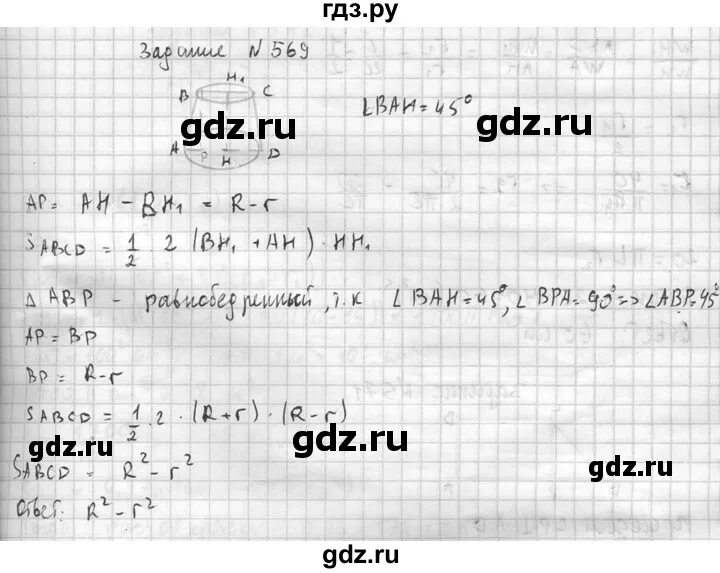 гдз.ру
Задание N 569
H₁
B C
∠BAH = 45°
gdz.ru gdz.ru
A P H D
AP = AH - BH₁ = R - r
SABCD = 1/2 · 2 (BH₁ + AH) · HH₁
gdz.ru gdz.ru
Δ ABP - равнобедренный, т.к ∠BAH = 45°, ∠BPA = 90° => ∠ABP = 45°
AP = BP
BP = R - r
SABCD = 1/2 · 2 · (R + r) · (R - r)
gdz.ru gdz.ru gdz.ru
SABCD = R² - r²
Ответ: R² - r²
gdz.ru